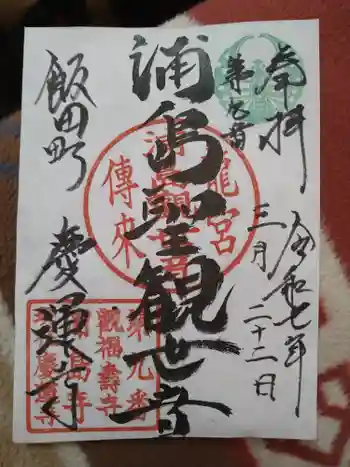 奉拝
第九番
令和七年
三月二十二日
浦島聖観世音
龍宮
浦島観世音
傳来
飯田町
慶運寺
第九番
観福壽寺
浦島寺
慶運寺